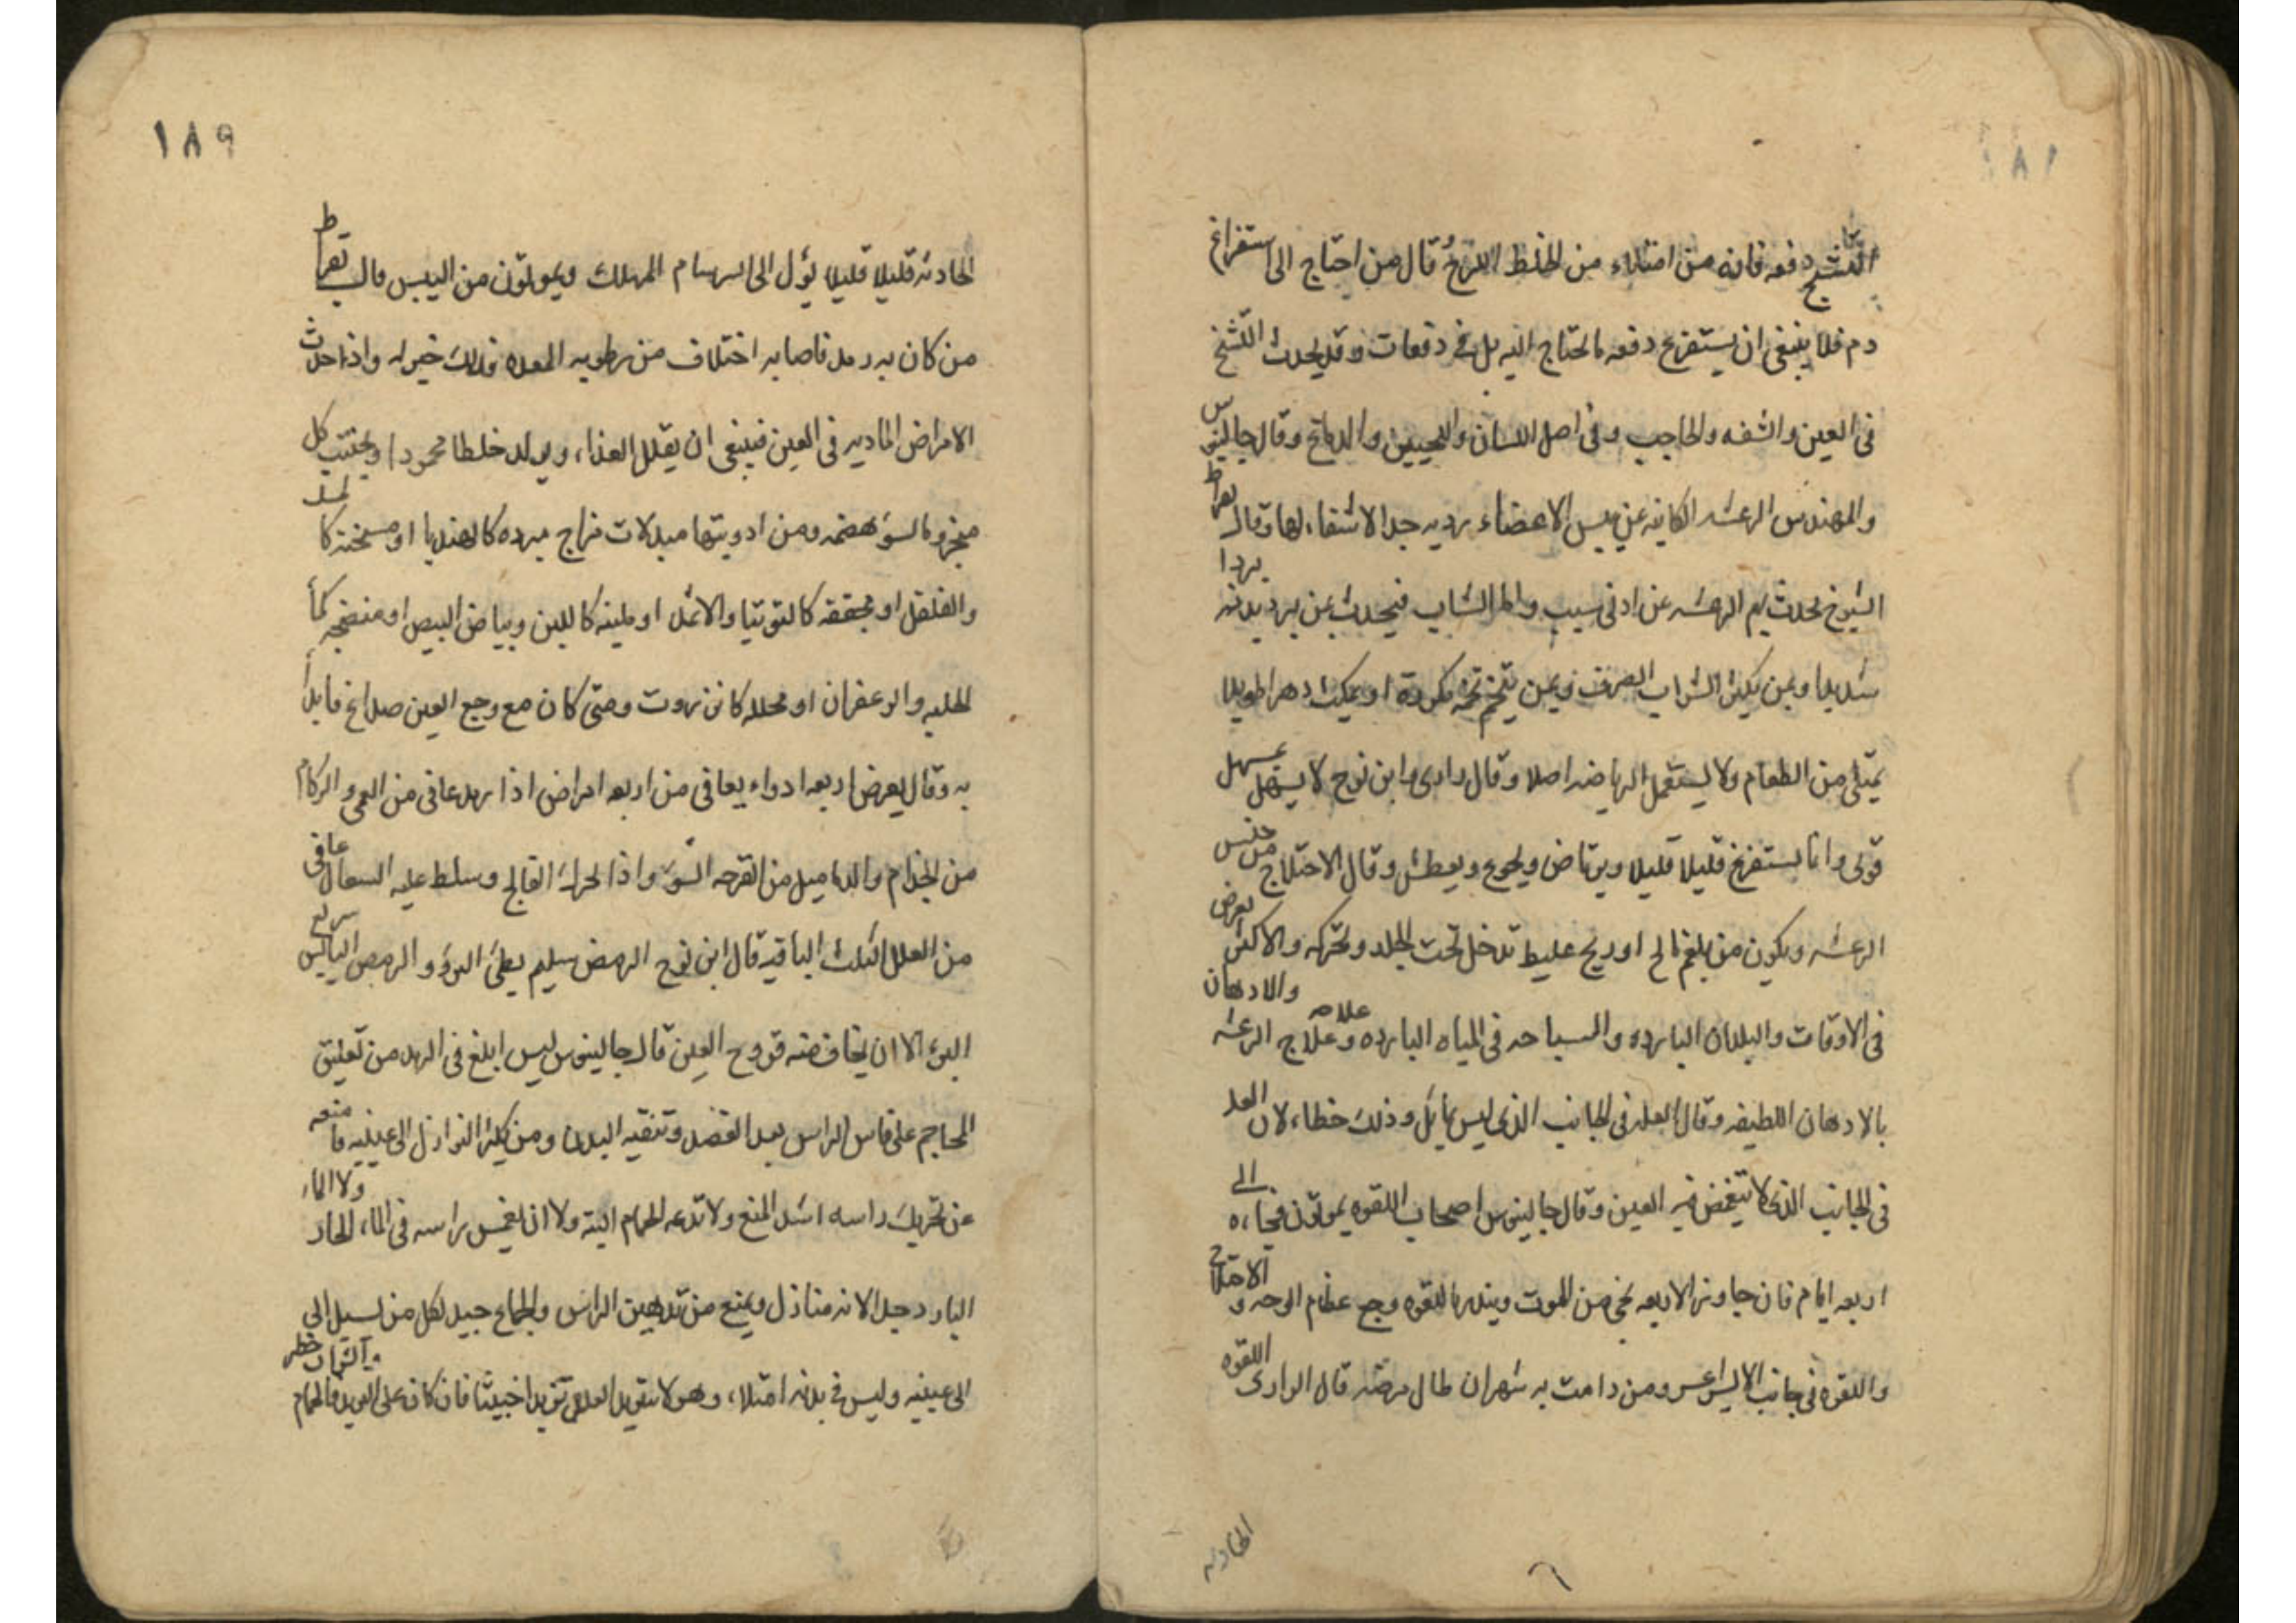 التشنج دفعه فانه من امتلاء من الخلط اللزج وقال من احتاج الى استفراغ
دم فلا ينبغى ان يستفرغ دفعه ما يحتاج اليه بل فى دفعات وقد يحدث التشنج
فى العين والشفه والحاجب وفى اصل اللسان واللحيين والدماغ وقال جالينوس
والمهندس الرعشه الكاينه عن يبس الاعضاء رديه جدا لا شفاء لها وقال بقراط
الشيوخ يحدث بهم الرعشه عن ادنى سبب واما الشاب فيحدث عن يبرد بدنه بردا
شديدا وعن يكثر الشراب الصرف وعن يتخم تخمه او يمكث دهرا طويلا
يمتلى من الطعام ولا يستعمل الرياضه اصلا وقال وابن نوح لا يسهل بمسهل
قوى وانما يستفرغ قليلا قليلا ويرتاض ويجوع ويعطش وقال الاختلاج من جنس
الرعشه ويكون من بلغم مالح او ريح غليظ تدخل تحت الجلد وتحركه والاكثر يعرض
فى الاوقات والبلدان البارده والسباحه فى المياه البارده وعلاج الرعشه علامه والادهان
بالادهان اللطيفه وقال العله فى الجانب الذى ليس بمائل وذلك خطاء لان العله
فى الجانب الذى لا يتغمض فيه العين وقال جالينوس اصحاب اللقوه يموتون فجاءه الى
اربعه ايام فان جاوز الاربعه نجى من الموت وينذر باللقوه وجع عظام الوجه والاختلاج
واللقوه فى جانب الايسر اعسر ومن دامت به شهران طال مرضه قال الرازى اللقوه
الحادثه
١٨٩
الحادثه قليلا قليلا يؤل الى السرسام المهلك ويموتون من اليبس قال بقراط
من كان به رمد فاصابه اختلاف من رطوبه المعده فذلك خير له واذا حدث
الامراض الماديه فى العين فينبغى ان يقلل الغذاء ويولد خلطا محمودا ويجتنب كل
مبخر وما لسؤ هضمه ومن ادويتها مبدلات مزاج مبرده كالهندبا او مسخنه كالمسك
والفلفل او مجففه كالتوتيا والاثمد او ملينه كاللبن وبياض البيض او منضجه كماء
الحلبه والزعفران او محلله كانزروت ومتى كان مع وجع العين صداع فابدأ
به وقال يعرض اربعه ادواء يعافى من اربعه امراض اذا رمد عافى من العمى والزكام
من الجذام والدماميل من القرحه السوء واذا تحرك الفالج وسلط عليه السعال عافى
من العلل الثلث الباقيه قال ابن نوح الرمص سليم بطئ البرؤ والرمص اليابس سريع
البرء الا ان يخاف منه قروح العين قال جالينوس ليس ابلغ فى الرمد من تعليق
المحاجم على فاس الراس بعد الفصد وتنقيه البدن ومن يكثر النوازل الى عينيه فامنعه
عن تحريك راسه اشد المنع ولا تدعه الحمام البته ولا ان يغمس راسه فى الماء الحار ولا الماء
البارد جدا لانه منازل ويمنع من تدهين الراس والجماع جيد لكل من يسيل الى
الى عينيه وليس فى بدنه امتلاء وهو لا فان كان على الحمام